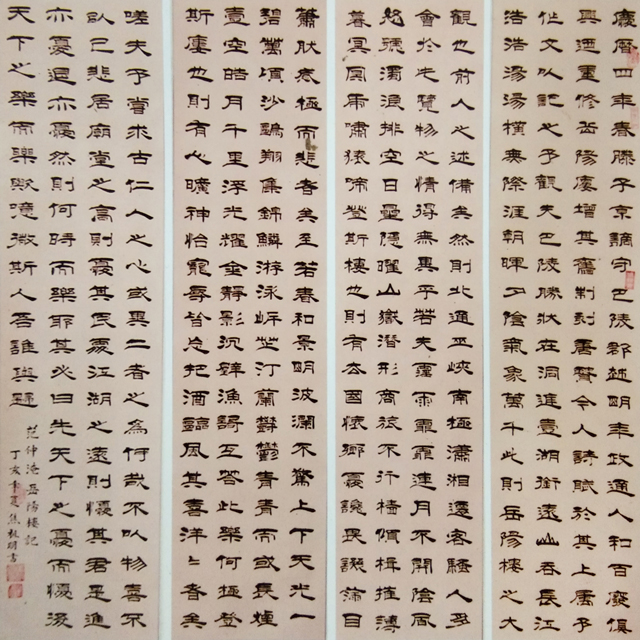 慶曆四年春滕子京謫守巴陵郡越明年政通人和百廢俱
興迺重修岳陽樓增其舊制刻唐賢今人詩賦於其上屬予
作文以記之予觀夫巴陵勝狀在洞庭壹湖銜遠山吞長江
浩浩湯湯橫無際涯朝暉夕陰氣象萬千此則岳陽樓之大
觀也前人之述備矣然則北通巫峽南極瀟湘遷客騷人多
會於此覽物之情得無異乎若夫霪雨霏連月不開陰風
怒號濁浪排空日星隱曜山嶽潛形商旅不行檣傾楫摧薄
暮冥冥虎嘯猿啼登斯樓也則有去國懷鄉憂讒畏譏滿目
蕭然感極而悲者矣至若春和景明波瀾不驚上下天光一
碧萬頃沙鷗翔集錦鱗游泳岸芷汀蘭鬱鬱青青而或長煙
壹空皓月千里浮光耀金靜影沉璧漁歌互答此樂何極登
斯樓也則有心曠神怡寵辱皆忘把酒臨風其喜洋洋者矣
嗟夫予嘗求古仁人之心或異二者之為何哉不以物喜不
以己悲居廟堂之高則憂其民處江湖之遠則憂其君是進
亦憂退亦憂然則何時而樂耶其必曰先天下之憂而憂後
天下之樂而樂歟噫微斯人吾誰與歸
范仲淹岳陽樓記
丁亥年夏